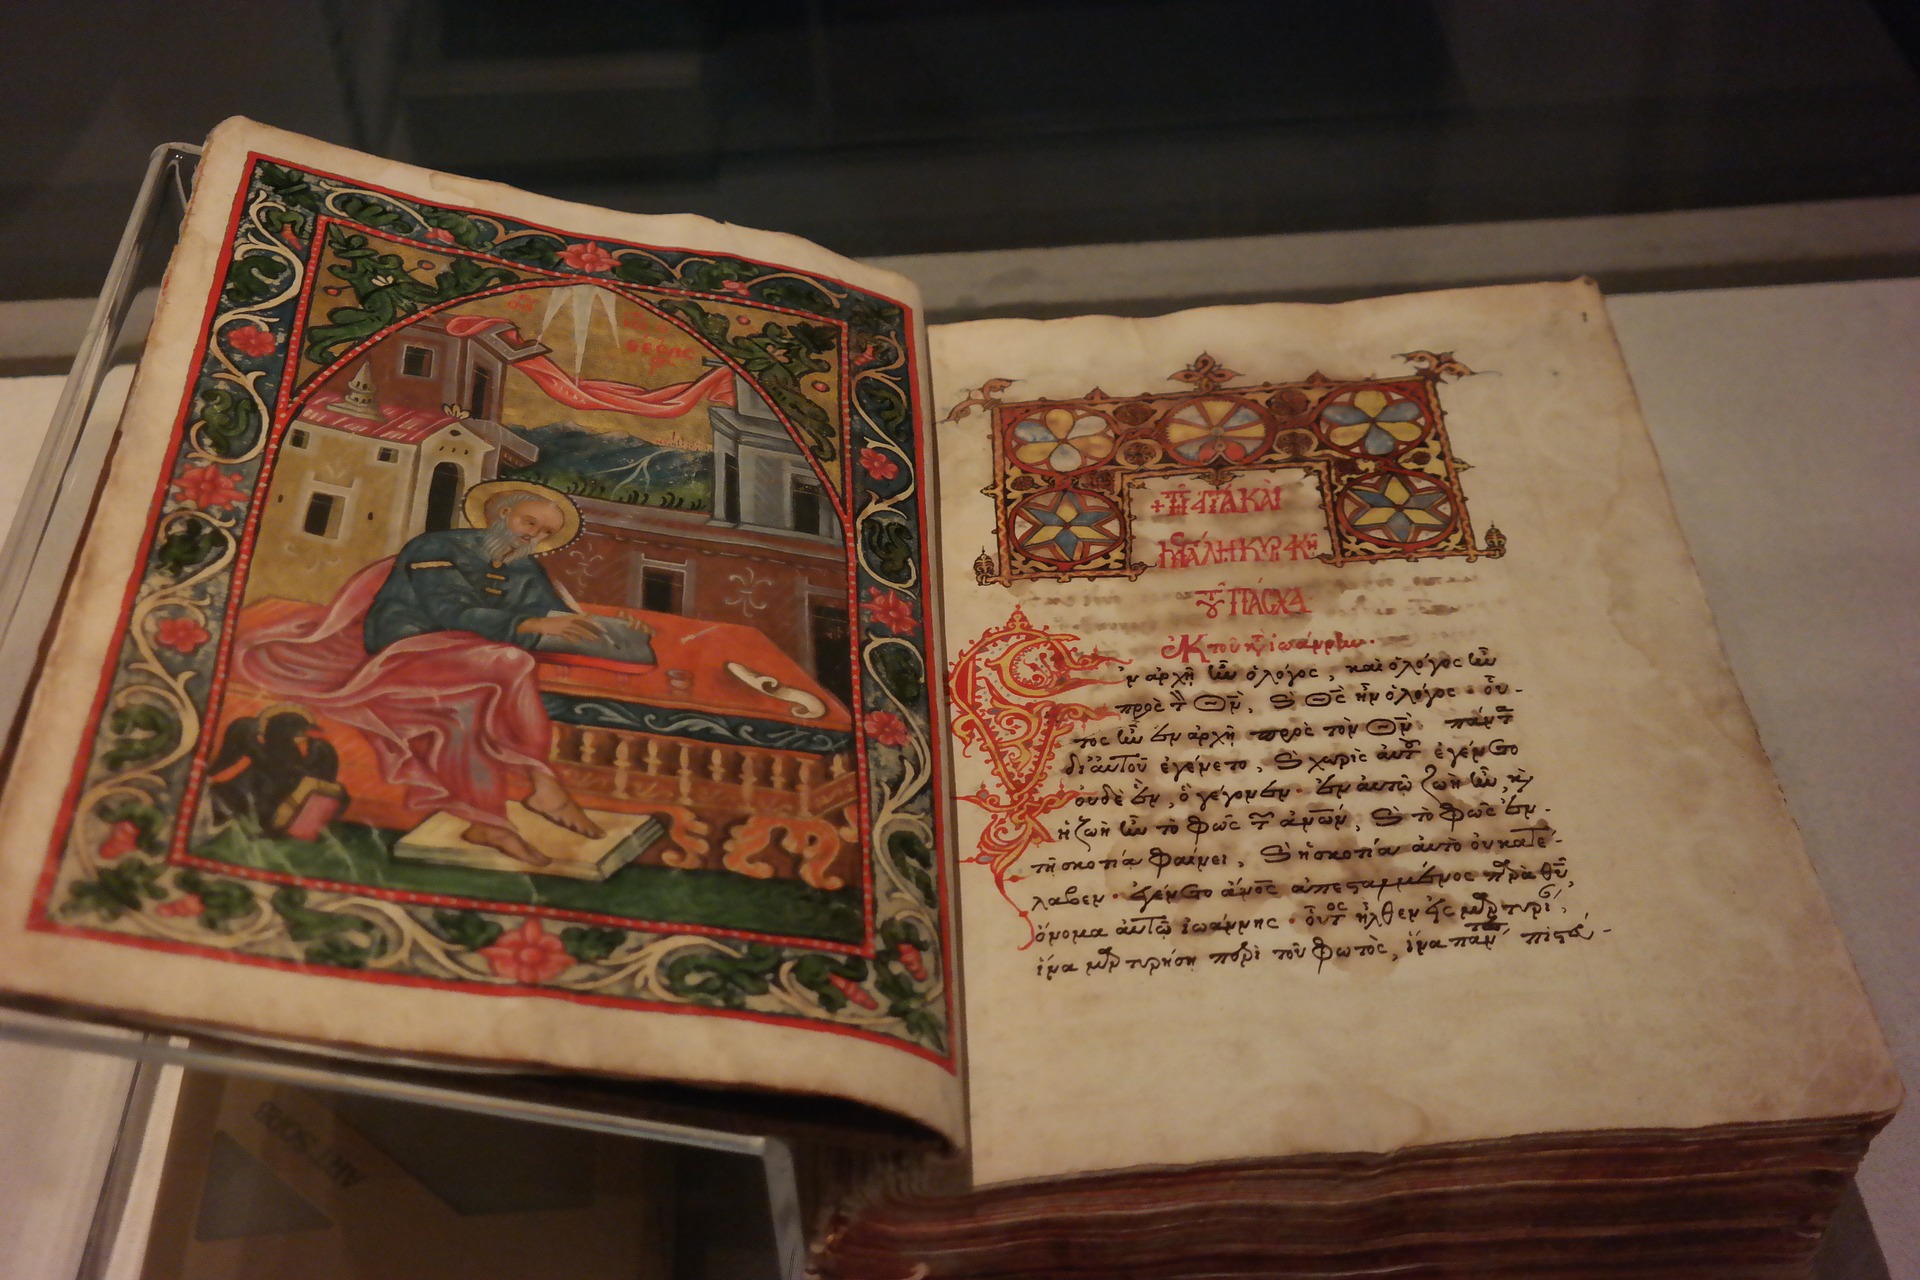 θεολο
+Τῇ ἁγίᾳ καὶ
μεγάλῃ κυριακῇ
τοῦ Πάσχα
ἐκ τοῦ κτ ἰωάννην.
Ἐν ἀρχῆ ἦν ὁ λόγος, καὶ ὁ λόγος ἦν
πρὸς τ Θν, καὶ Θς ἦν ὁ λόγος· οὗ-
τος ἦν ἐν ἀρχῆ πρὸς τὸν Θν· πάντ
δι' αὐτοῦ ἐγένετο, καὶ χωρὶς αὐτ ἐγένετο
οὐδὲ ἐν, ὃ γέγονεν· ἐν αὐτῶ ζωὴ ἦν, κ
ἡ ζωὴ ἦν τὸ φῶς τ ἀνων, καὶ τὸ φῶς ἐν
τῆ σκοτία φαίνει, καὶ ἡ σκοτία αὐτὸ οὐ κατέ-
λαβεν· ἐγένετο ἄνος ἀπεσταλμένος παρὰ θυ,
ὄνομα αὐτῶ ἰωάννης· οὗτος ἦλθεν εἰς μαρτυρί,
ἵνα μαρτυρήση περὶ τοῦ φωτὸς, ἵνα πάν πιστεύ-